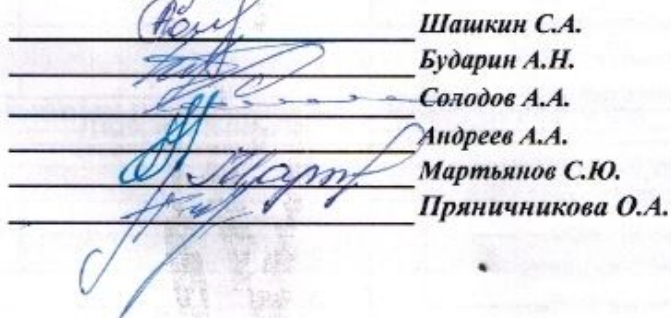 Шашкин С.А.
Бударин А.Н.
Солодов А.А.
Андреев А.А.
Мартьянов С.Ю.
Пряничникова О.А.